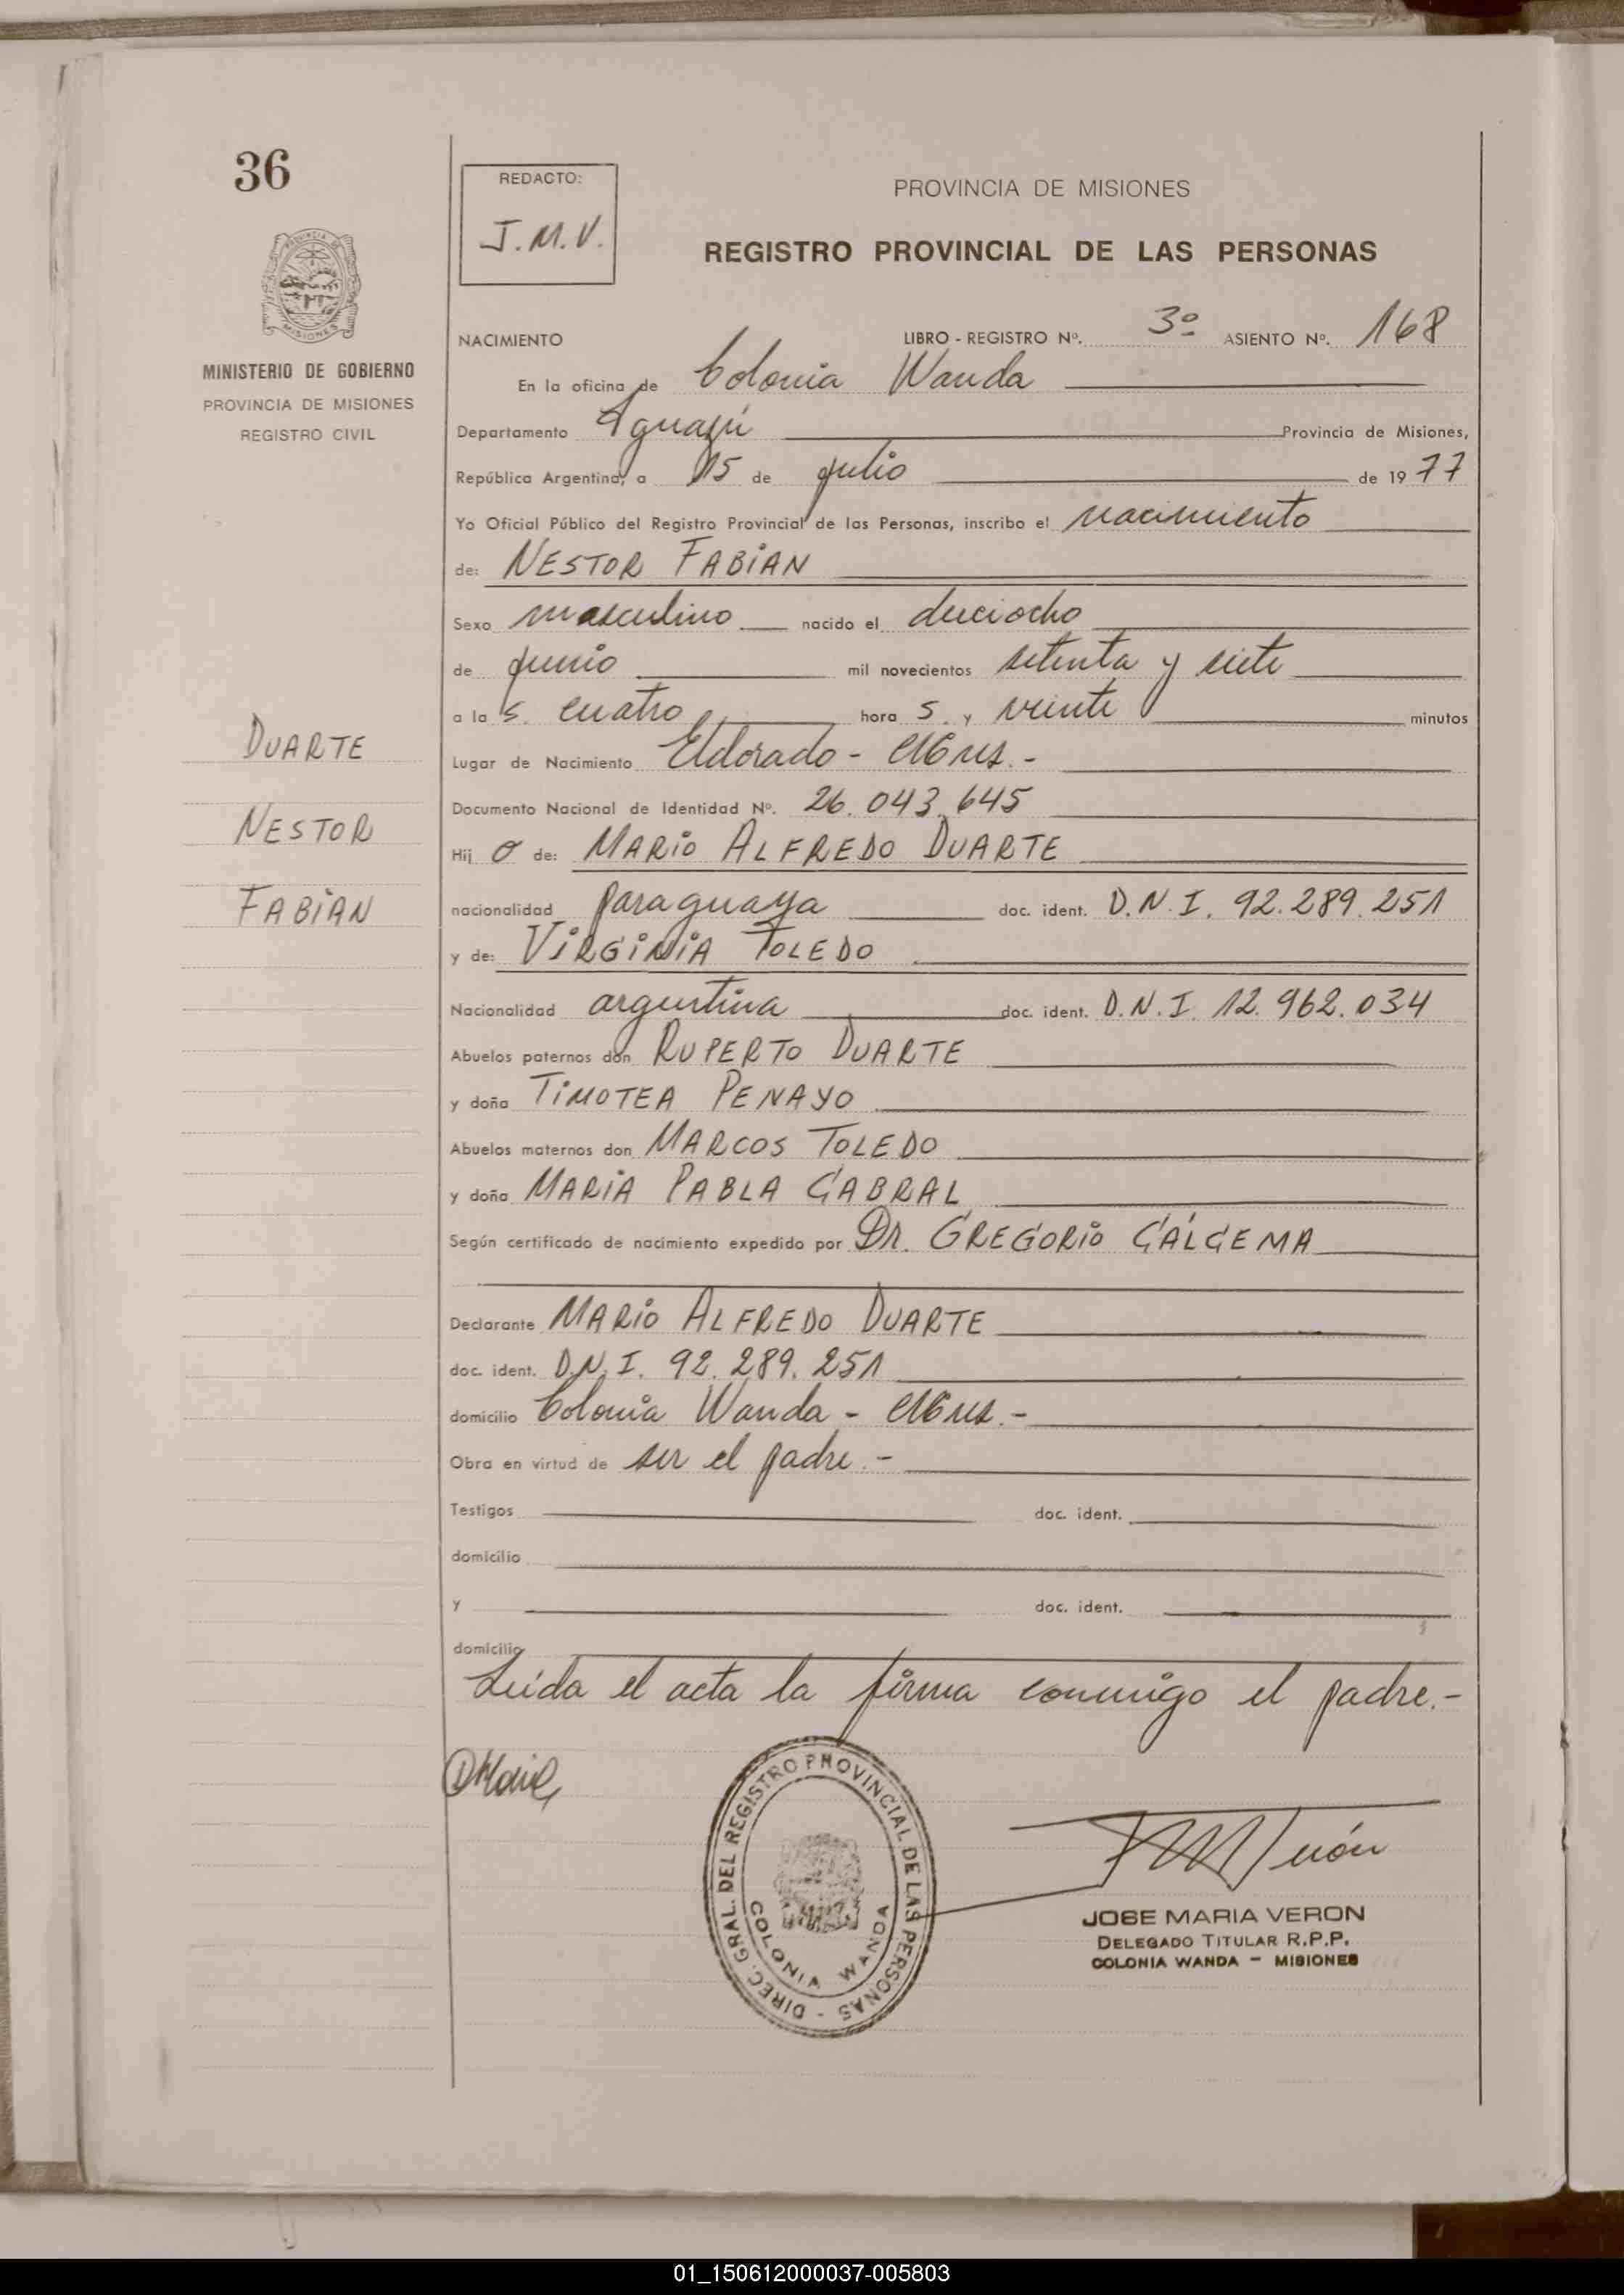 36
REDACTO:
J.M.V.
PROVINCIA DE MISIONES
REGISTRO PROVINCIAL DE LAS PERSONAS
MINISTERIO DE GOBIERNO
PROVINCIA DE MISIONES
REGISTRO CIVIL
NACIMIENTO LIBRO - REGISTRO Nº. 3º ASIENTO Nº. 168
En la oficina de Colonia Wanda
Departamento Iguazú Provincia de Misiones,
República Argentina, a 15 de julio de 1977
Yo Oficial Público del Registro Provincial de las Personas, inscribo el nacimiento
de: NESTOR FABIAN
Sexo masculino nacido el dieciocho
de junio mil novecientos setenta y siete
a la s. cuatro hora s. y veinte minutos
Lugar de Nacimiento Eldorado - Mnes.-
Documento Nacional de Identidad Nº. 26.043.645
Hij o de: MARIO ALFREDO DUARTE
nacionalidad paraguaya doc. ident. D.N.I. 92.289.251
y de: VIRGINIA TOLEDO
Nacionalidad argentina doc. ident. D.N.I. 12.962.034
Abuelos paternos don RUPERTO DUARTE
y doña TIMOTEA PENAYO
Abuelos maternos don MARCOS TOLEDO
y doña MARIA PABLA CABRAL
Según certificado de nacimiento expedido por Dr. GREGORIO
Declarante MARIO ALFREDO DUARTE
doc. ident. D.N.I. 92.289.251
domicilio Colonia Wanda - Mnes.-
Obra en virtud de ser el padre.-
Testigos doc. ident.
domicilio
y doc. ident.
domicilio
Leída el acta la firma conmigo el padre.-
DUARTE
NESTOR
FABIAN
DIREC. GRAL. DEL REGISTRO PROVINCIAL DE LAS PERSONAS -
COLONIA WANDA
JOSE MARIA VERON
DELEGADO TITULAR R.P.P.
COLONIA WANDA - MISIONES
01_150612000037-005803